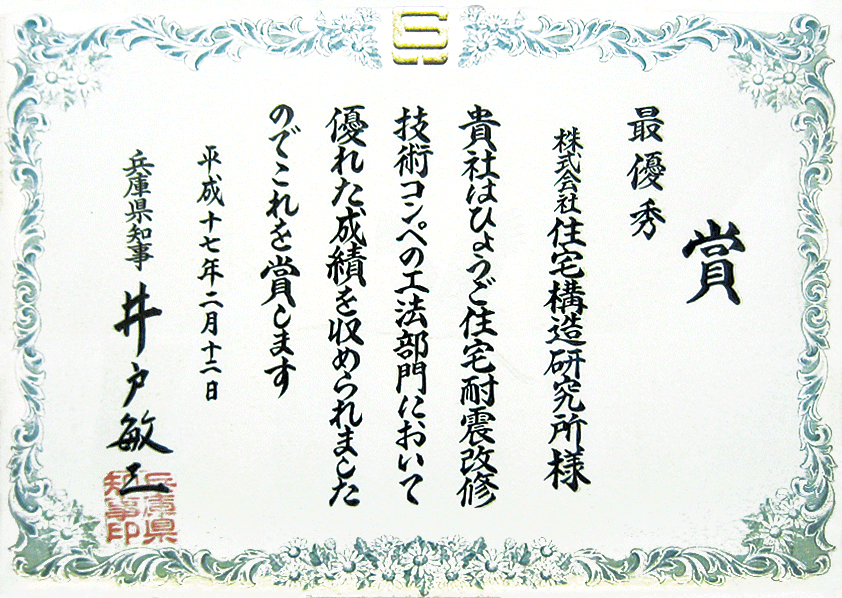 賞
最優秀
株式会社住宅構造研究所様
貴社はひょうご住宅耐震改修
技術コンペの工法部門において
優れた成績を収められました
のでこれを賞します
平成十七年二月十二日
兵庫県知事 井戸敏三
兵庫県
知事印